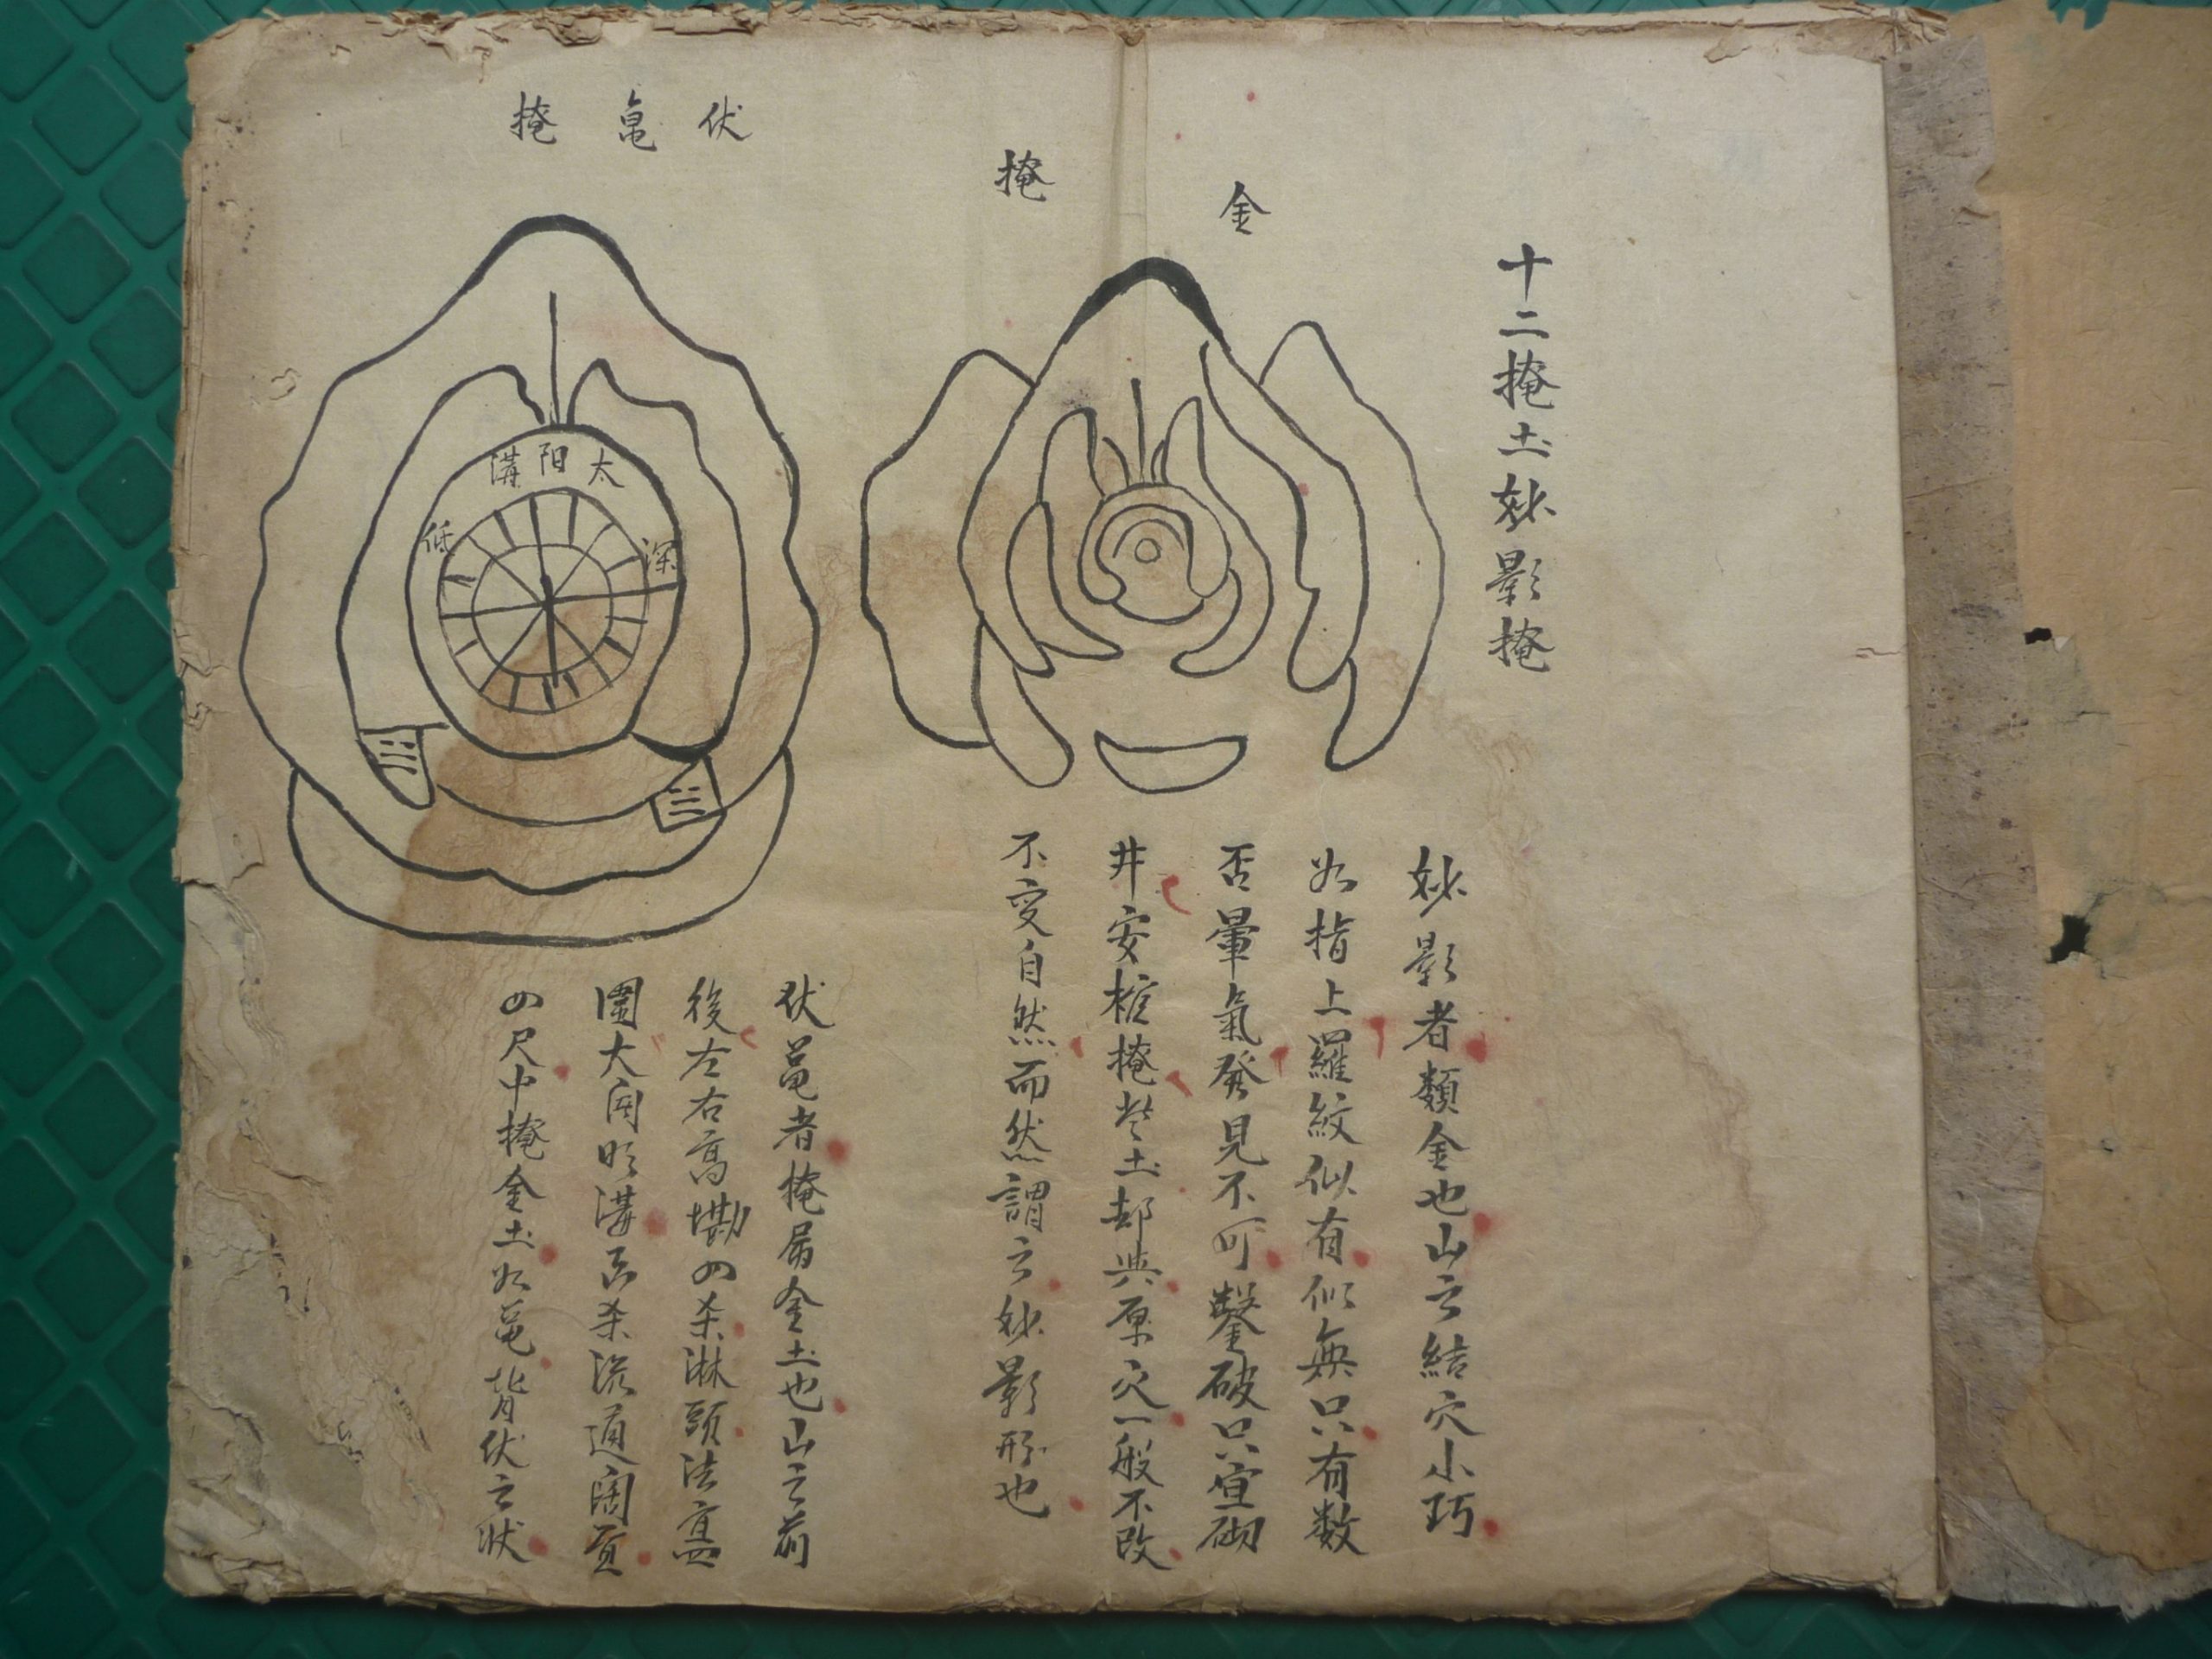 十二掩土妙影掩
金掩
妙影者類金也山之結穴小巧
如指上羅紋似有似無只有数
否暈氣發見不可鑿破只宜砌
井安棺掩土却與原穴一般不改
不変自然而然謂之妙影形也
伏亀掩
太阳溝
深
低
伏亀者掩屬金土也山之前
後左右高墈四杀淋頭法宜
圍大闊明溝杀流道闊貳
四尺中掩金土如亀背伏之状